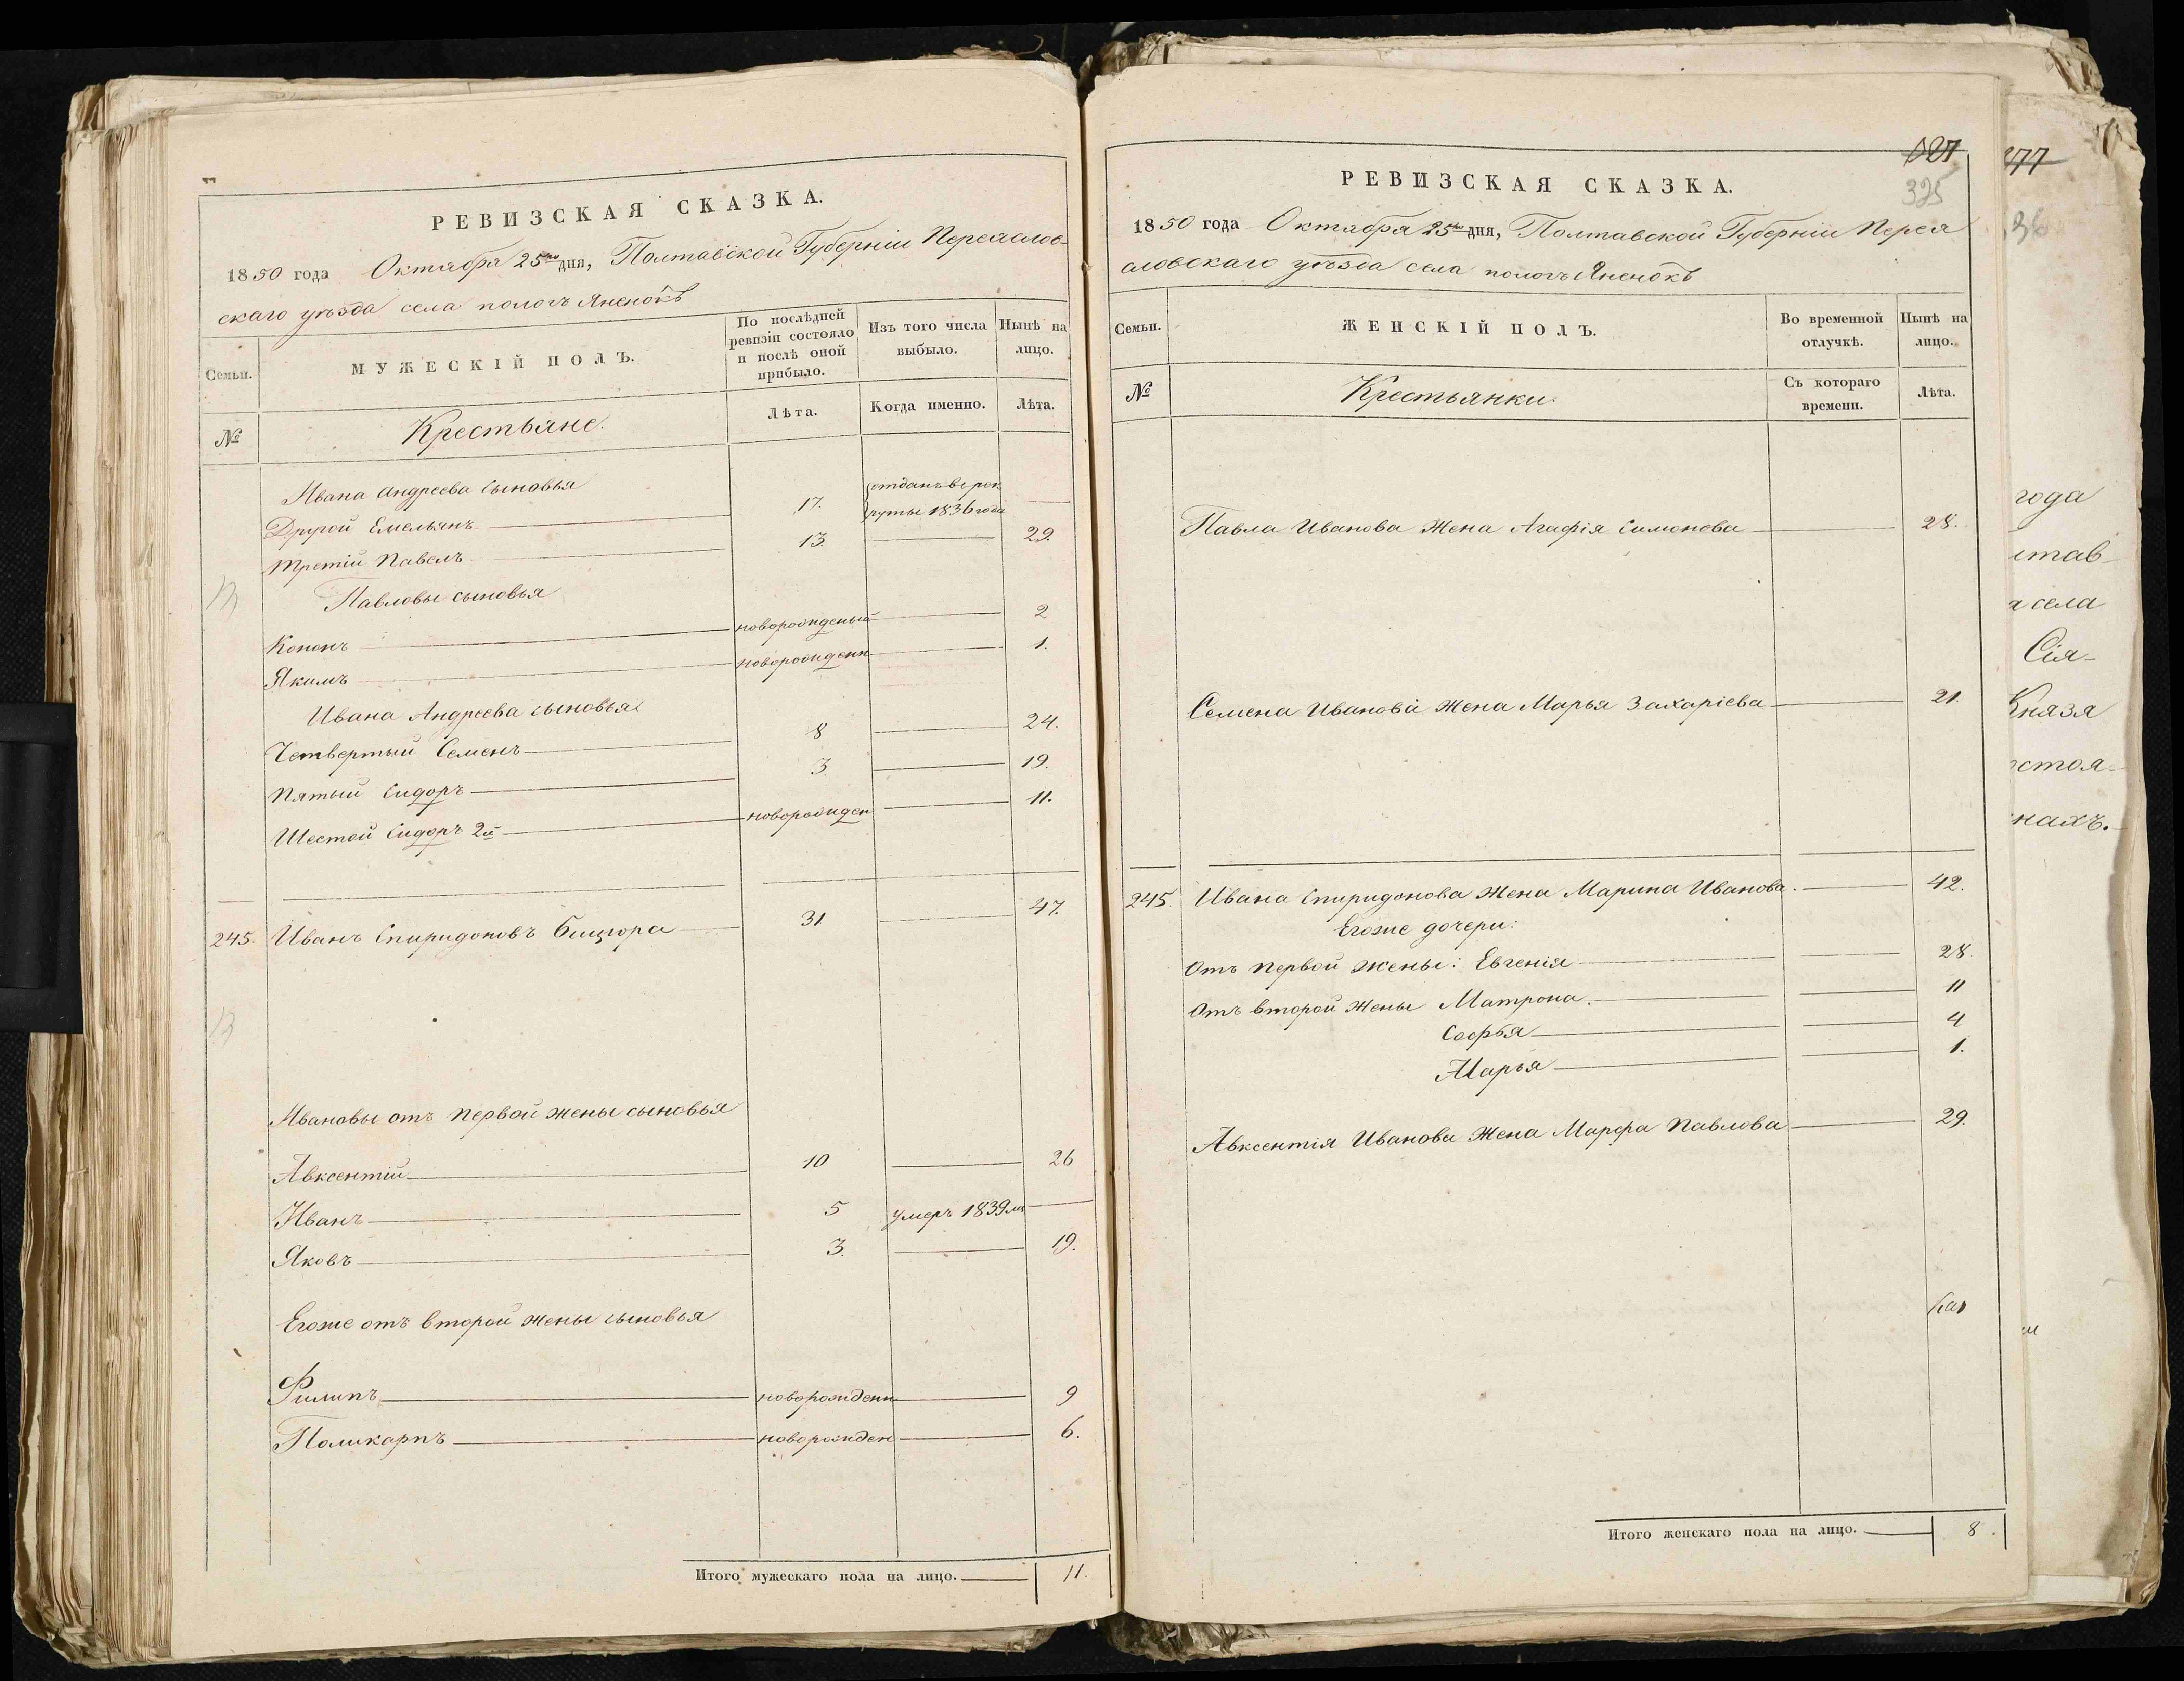 РЕВИЗСКАЯ СКАЗКА.
1850 года Октября 25го дня, Полтавской Губерніи Переяслов-
скаго уѣзда села пологъ Яненокъ
Семьи.
МУЖЕСКІЙ ПОЛЪ.
По послѣдней ревизіи состояло и послѣ оной прибыло.
Изъ того числа выбыло.
Нынѣ на лицо.
№
Крестьяне.
Лѣта.
Когда именно.
Лѣта.
Ивана Андреева сыновья
Другой Емельянъ 17. отданъ в рек
руты 1836 года
Третій Павелъ 13. 29.
Павловы сыновья
Кононъ новорожденый 2
Якимъ новорожденн 1.
Ивана Андреева сыновья
Четвертый Семенъ 8 24.
Пятый Сидоръ 3. 19.
Шестой Сидоръ 2й новорожден 11.
245. Иванъ Спиридоновъ 31 47.
Ивановы отъ первой жены сыновья
Авксентій 10 26
Иванъ 5 умеръ 1839
Яковъ 3. 19.
Егоже отъ второй жены сыновья
Филипъ новорожденн 9
Поликарпъ новорожден 6.
Итого мужескаго пола на лицо. 11.
325
РЕВИЗСКАЯ СКАЗКА.
1850 года Октября 25го дня, Полтавской Губерніи Перея
словскаго уѣзда села пологъ Яненокъ
Семьи.
ЖЕНСКІЙ ПОЛЪ.
Во временной отлучкѣ.
Нынѣ на лицо.
№
Крестьянки.
Съ котораго времени.
Лѣта.
Павла Иванова жена Агафія Симонова 28.
Семена Иванова жена Марья Захаріева 21.
245. Ивана Спиридонова жена Марина Иванова. 42.
Егоже дочери:
Отъ первой жены: Евгенія 28.
Отъ второй жены Матрона. 11
Софья 4
Марья 1.
Авксентія Иванова жена Марфа Павлова 29.
Итого женскаго пола на лицо. 8.
277
года
став
села
Сія-
Князя
стоя-
нахъ.